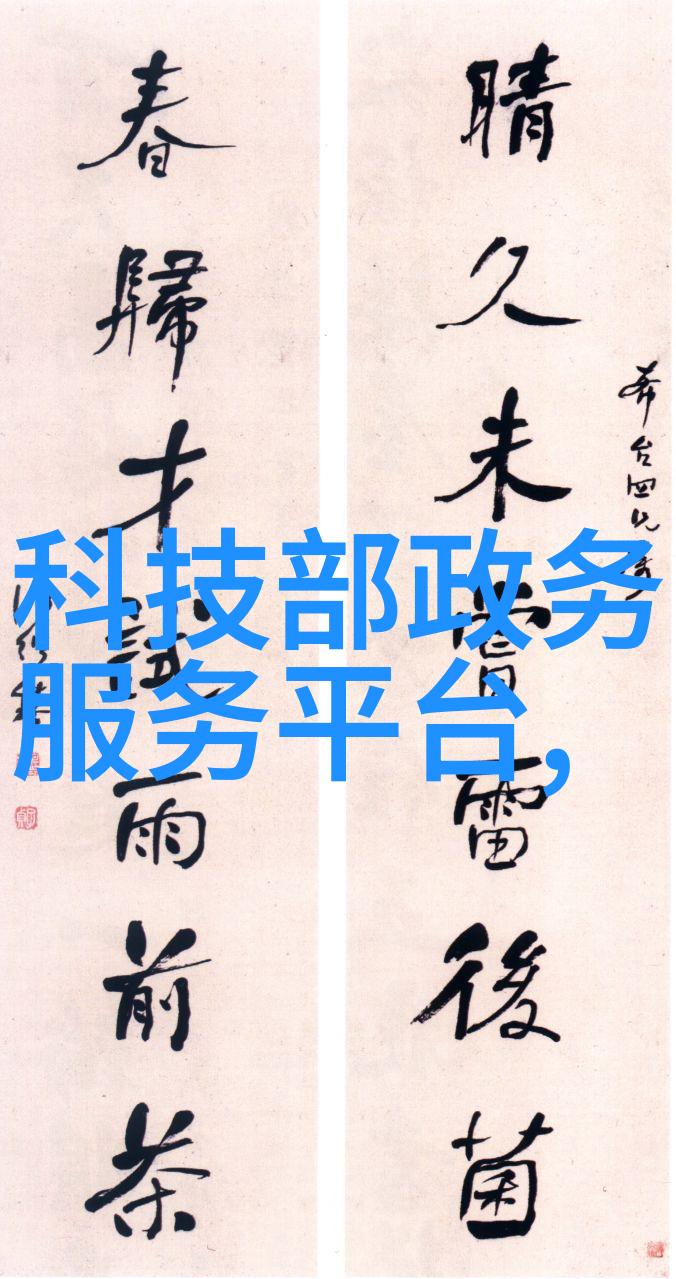 科技部政务
服务平台,
晴久未嘗雷後菌
春歸才試雨前茶